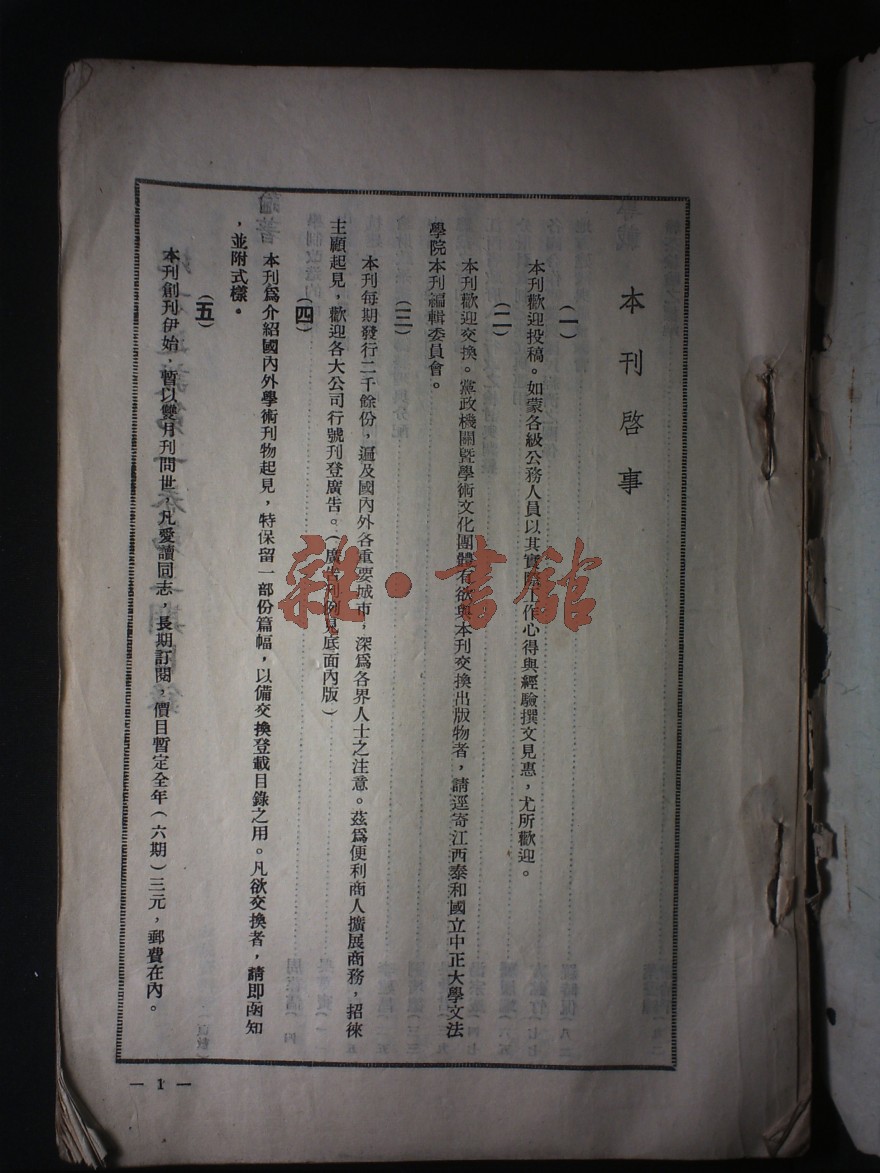 本刊啓事
(一)
本刊歡迎投稿。如蒙各級公務人員以其實際工作心得與經驗撰文見惠,尤所歡迎。
(二)
本刊歡迎交換。黨政機關暨學術文化團體有欲與本刊交換出版物者,請逕寄江西泰和國立中正大學文法
學院本刊編輯委員會。
(三)
本刊每期發行二千餘份,遍及國內外各重要城市,深爲各界人士之注意。茲爲便利商人擴展商務,招徠
主顧起見,歡迎各大公司行號刊登廣告。(廣告刊例見底面內版)
(四)
本刊爲介紹國內外學術刊物起見,特保留一部份篇幅,以備交換登載目錄之用。凡欲交換者,請即函知
,並附式樣。
(五)
本刊創刊伊始,暫以雙月刊問世,凡愛讀同志,長期訂閱,價目暫定全年(六期)三元,郵費在內。
— 1 —
雜·書館